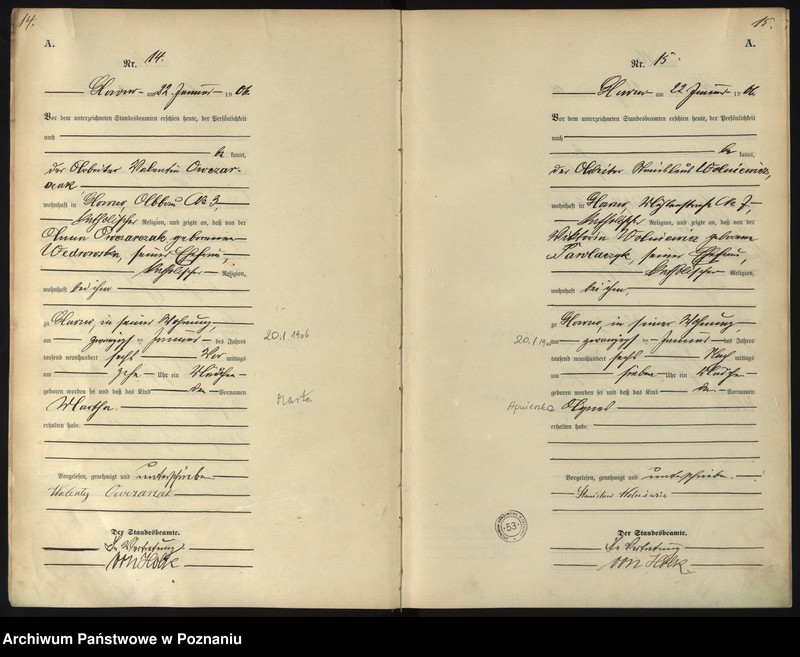 14.
A.
Nr. 14.
am 22. Januar 1906.
Vor dem unterzeichneten Standesbeamten erschien heute, der Persönlichkeit
nach
be kannt,
der Arbeiter Valentin Owczar-
czak
wohnhaft in No 3,
katholischer Religion, und zeigte an, daß von der
Anna Owczarczak geborenen
seiner Ehefrau,
katholischer Religion,
wohnhaft bei ihm
zu in seiner Wohnung,
am zwanzigsten Januar des Jahres
tausend neunhundert sechs Vor mittags
um zehn Uhr ein Mädchen
geboren worden sei und daß das Kind den Vornamen
Martha
erhalten habe.
20.I 1906
Marta
Vorgelesen, genehmigt und unterschrieben
Walenty Owczarzak
Der Standesbeamte.
In Vertretung.
von
15.
A.
Nr. 15.
am 22 Januar 1906.
Vor dem unterzeichneten Standesbeamten erschien heute, der Persönlichkeit
nach
be kannt,
der Arbeiter Stanislaus Wolniewicz,
wohnhaft in No 7,
katholischer Religion, und zeigte an, daß von der
Wiktoria Wolniewicz geborene
Pawlaczyk, seiner Ehefrau,
katholischer Religion,
wohnhaft bei ihm,
zu in seiner Wohnung
am zwanzigsten Januar des Jahres
tausend neunhundert sechs Nach mittags
um sieben Uhr ein Mädchen
geboren worden sei und daß das Kind den Vornamen
Agnes
erhalten habe.
20.I
Agnieszka
Vorgelesen, genehmigt und unterschrieben.
Stanislaw Wolniewicz
53
Der Standesbeamte.
In Vertretung
von
Archiwum Państwowe w Poznaniu